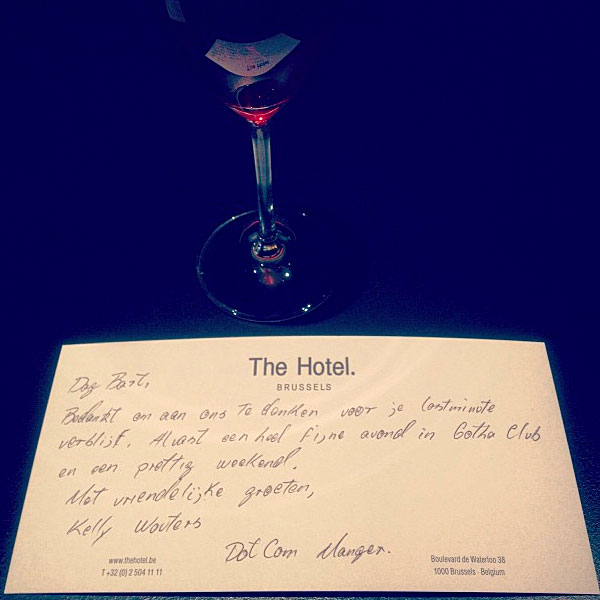 The Hotel.
BRUSSELS
Dag Bart,
Bedankt om aan ons te denken voor je lastminute
verblijf. Alvast een heel fijne avond in Gotha Club
en een prettig weekend.
Met vriendelijke groeten,
Kelly Wouters
Dot Com Manger.
www.thehotel.be
T +32 (0) 2 504 11 11
Boulevard de Waterloo 38
1000 Brussels - Belgium